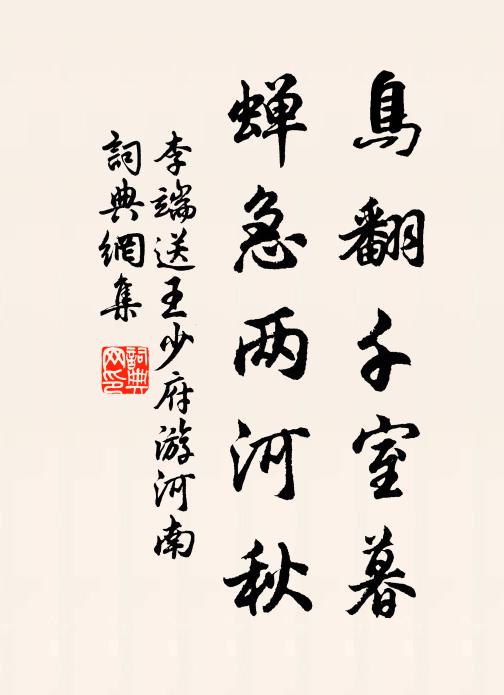 鳥翻千室暮
蝉急两河秋
李端送王少府游河南
詞典網集
詞典网印